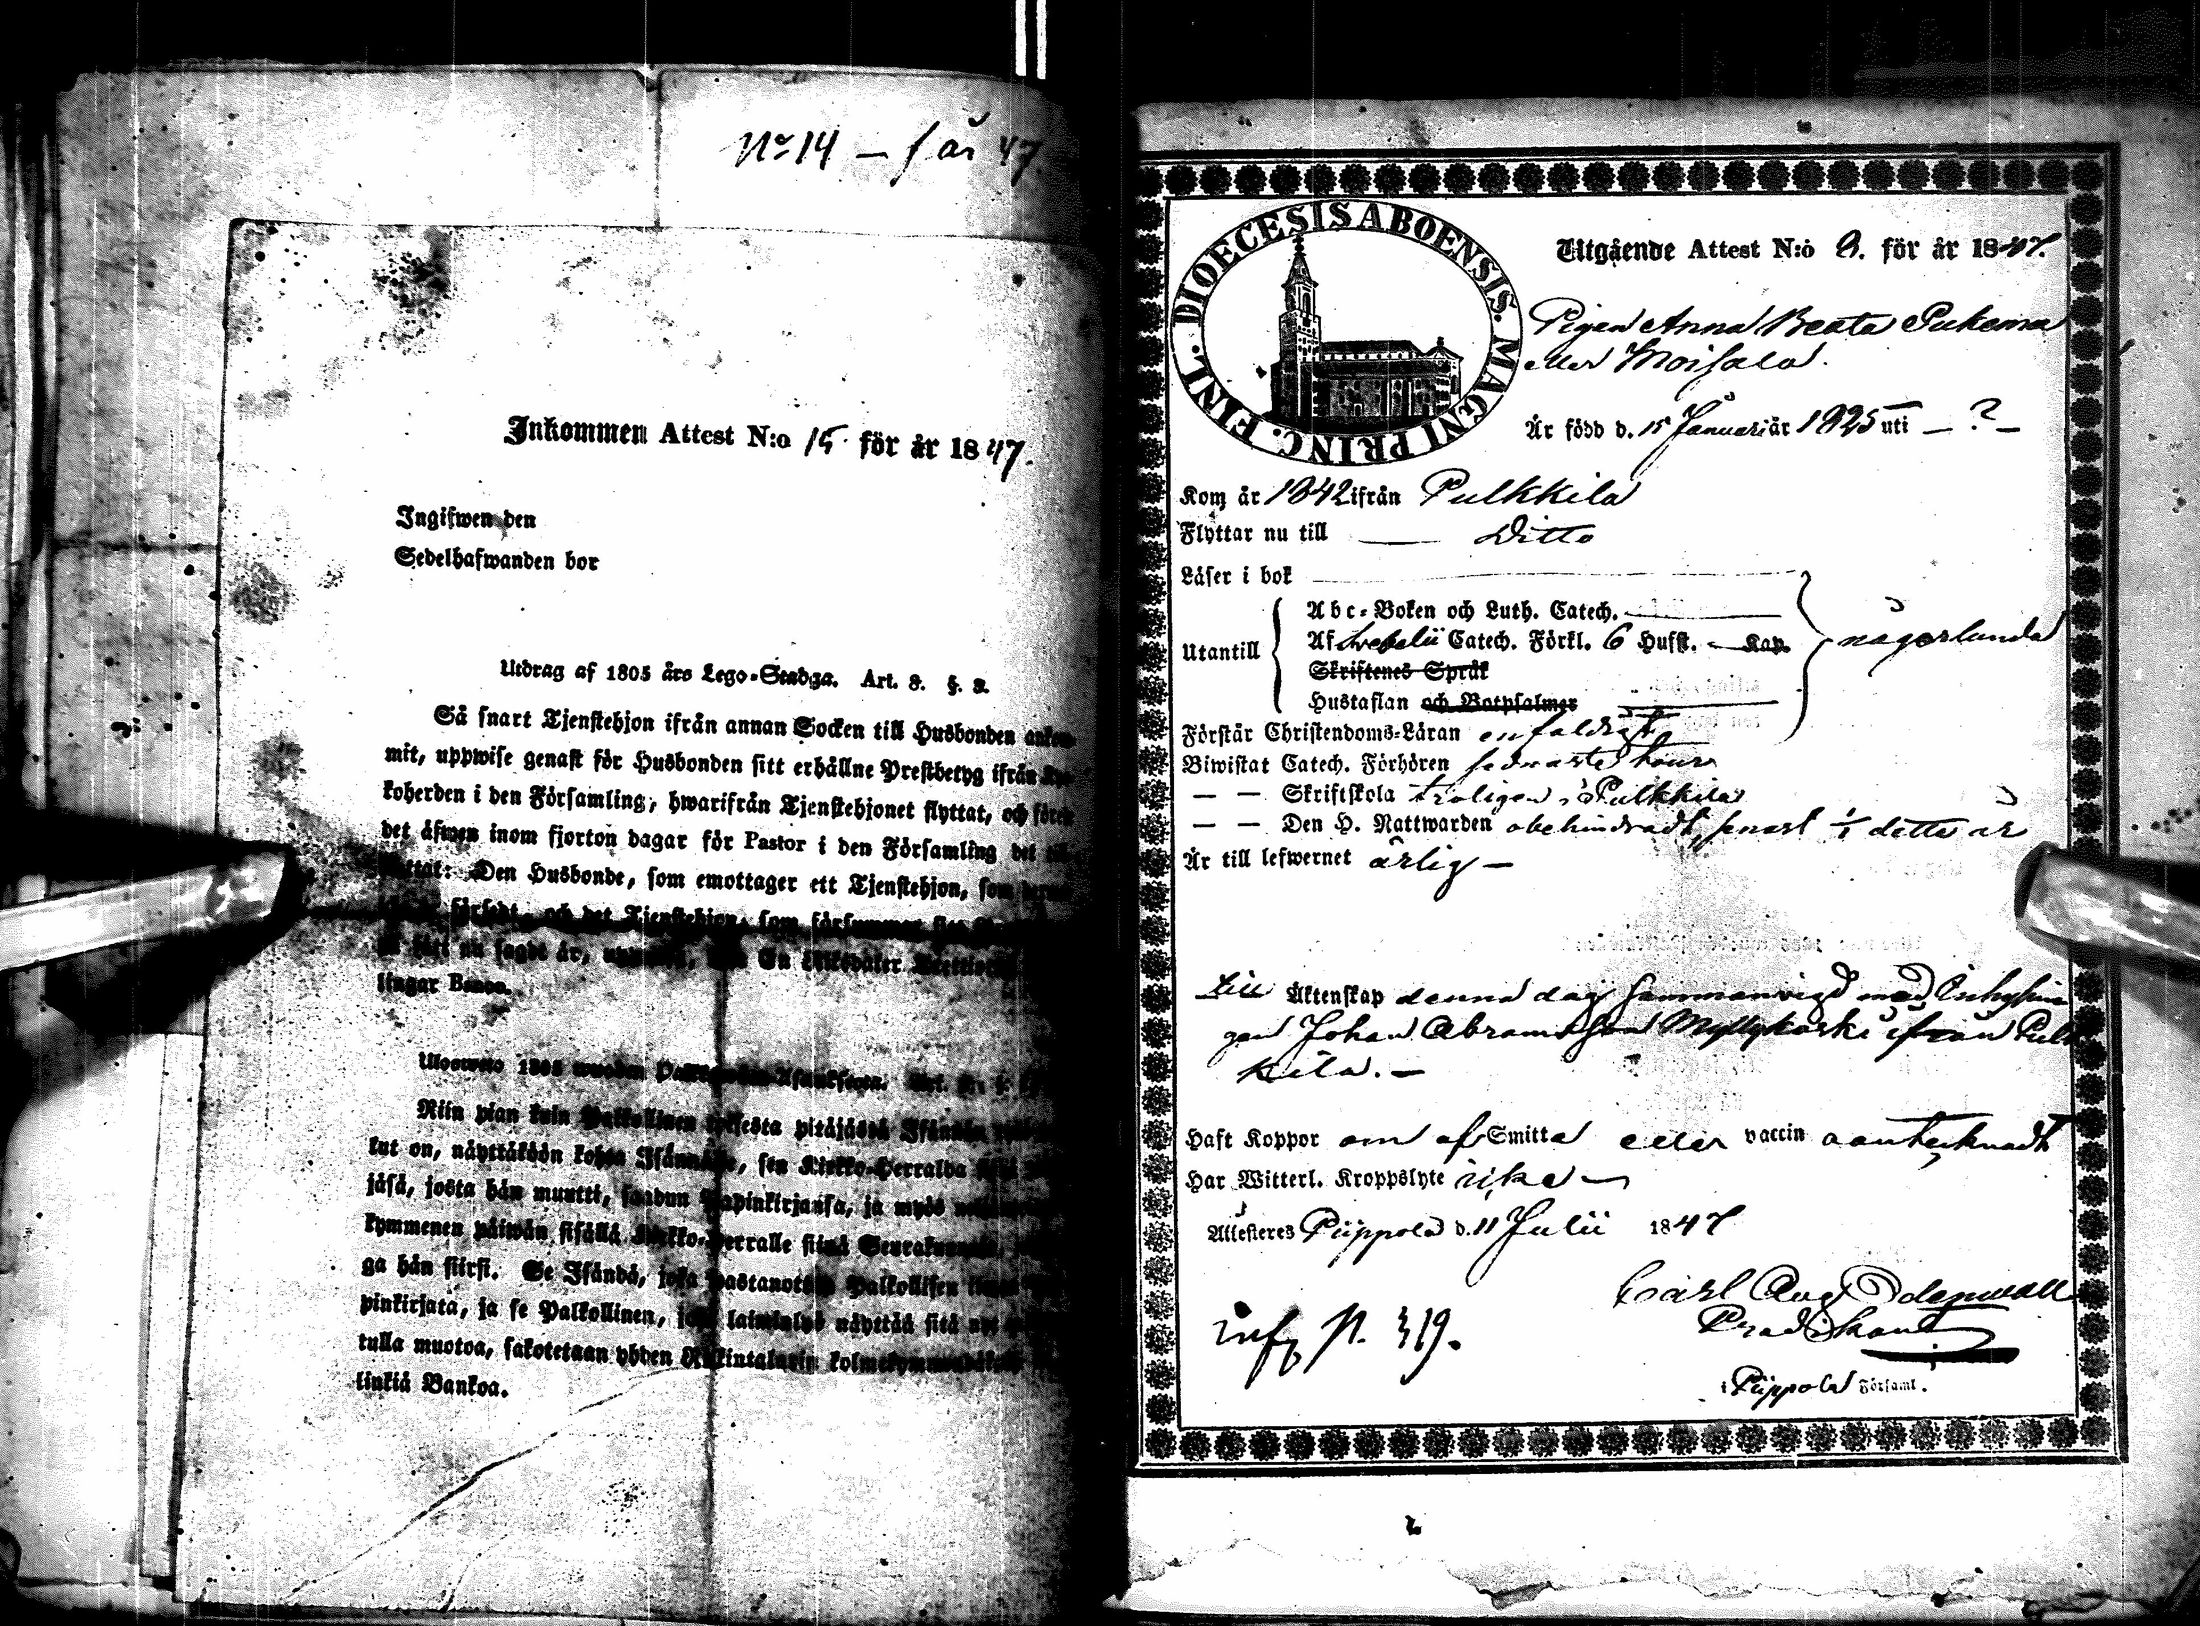 No 14 — f år 47
Inkommen Attest N:o 15. för år 1847.
Ingifwen den
Sedelhafwanden bor
Utdrag af 1805 års Lego-Stadga. Art. 8. §. 2.
Så snart Tjenstehjon ifrån annan Socken till Husbonden
mit, uppwise genast för Husbonden sitt erhållne Prestbetyg ifrån
koherden i den Församling, hwarifrån Tjenstehjonet flyttat, och
det äfwen inom fjorton dagar för Pastor i den Församling det
Den Husbonde, som emottager ett Tjenstehjon, som
och det Tjenstehjon, som försummar
sagdt är, En
lingar Banco.
Ulosweto 1805 wuoden
Niin pian kuin Palkollinen pitäjästä
kut on, näyttäköön kohta Isännälle, sen Kirkko-Herralda
jäsä, josta hän muutti, saadun Papinkirjansa, ja myös
kymmenen päiwän sisällä Kirkko-Herralle siinä
ga hän siirsi. Se Isändä, joka wastanottaa Palkollisen
pinkirjata, ja se Palkollinen, joka laiminlyö näyttää sitä
tulla muotoa, sakotetaan yhden Rikintalarin
linkiä Bankoa.
DIOECESIS ABOENSIS. MAGNI PRINC. FINL.
Utgående Attest N:o 9. för år 1847.
Pigan Anna Beata Pukema
eller Moisala.
Är född d. 15 Januari år 1825 uti — ? —
Kom år 1842 ifrån Pulkkila
Flyttar nu till — Ditto
Läser i bok
Utantill
Abc-Boken och Luth. Catech.
Af Swebelii Catech. Förkl. 6 Hufst. — Kap.
Skriftenes Språk
Hustaflan och Botpsalmer
någorlunda
Förstår Christendoms-Läran enfaldigt
Biwistat Catech. Förhören sednaste
— — Skriftskola troligen i Pulkkila
— — Den H. Nattwarden obehindradt, senast 1/1 detta år
Är till lefwernet ärlig —
till Äktenskap denna dag sammanvigd med Inhysin
gen Johan Abramsson Myllykoski ifrån Pulk
kila. —
Haft Koppor om af Smitta eller vaccin oantecknadt
Har Witterl. Kroppslyte icke —
Attesteres Piippola d. 11 Julii 1847
Carl Aug Odenwall
Predikant
i Piippola Församl.
inf p. 319.